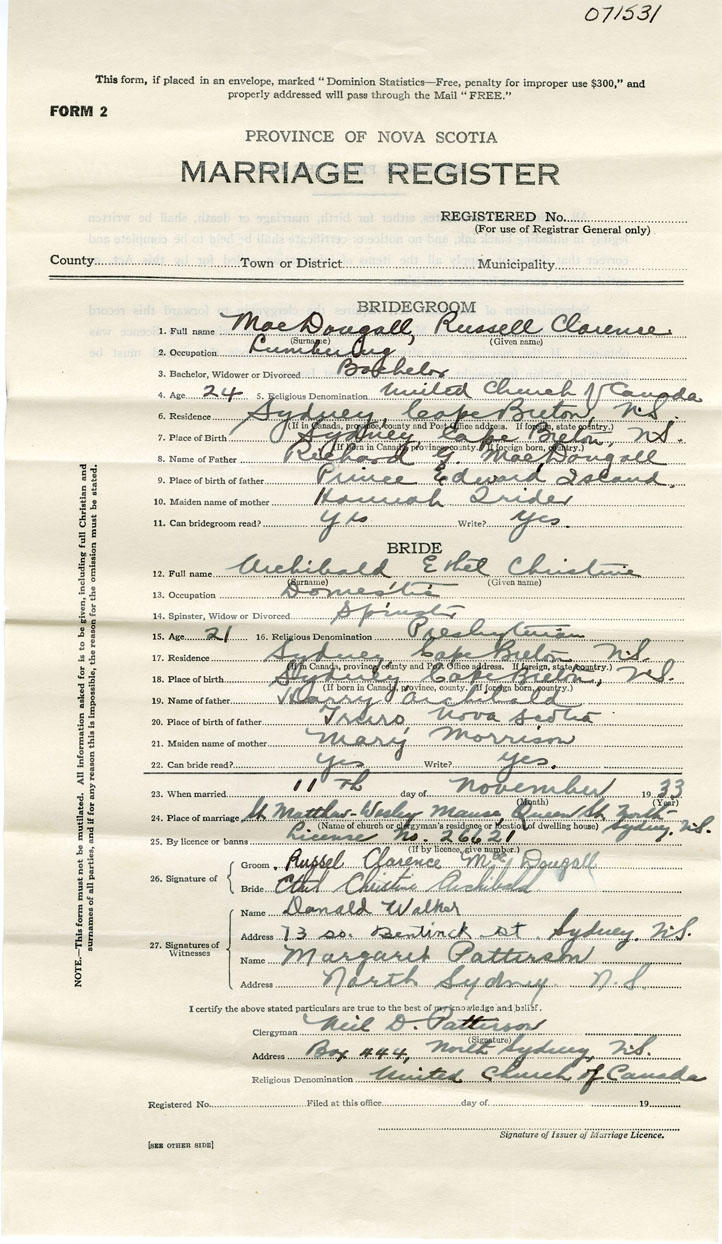 071531
This form, if placed in an envelope, marked "Dominion Statistics—Free, penalty for improper use $300," and
properly addressed will pass through the Mail "FREE."
FORM 2
PROVINCE OF NOVA SCOTIA
MARRIAGE REGISTER
REGISTERED No.
(For use of Registrar General only)
County Town or District Municipality
BRIDEGROOM
1. Full name MacDougall, Russell Clarence
(Surname) (Given name)
2. Occupation
3. Bachelor, Widower or Divorced Bachelor
4. Age 24 5. Religious Denomination United Church of Canada
6. Residence Sydney, Cape Breton, N.S.
(If in Canada, province, county and Post Office address. If foreign, state, country.)
7. Place of Birth Sydney Cape Breton, N.S.
(If born in Canada, province, county. If foreign born, country.)
8. Name of Father Richard G. MacDougall
9. Place of birth of father Prince Edward Island.
10. Maiden name of mother Hannah Trider
11. Can bridegroom read? Yes Write? Yes.
BRIDE
12. Full name Archibald Ethel Christine
(Surname) (Given name)
13. Occupation Domestic
14. Spinster, Widow or Divorced Spinster
15. Age 21 16. Religious Denomination Presbyterian
17. Residence Sydney Cape Breton N.S.
(If in Canada, province, county and Post Office address. If foreign, state, country.)
18. Place of birth Sydney Cape Breton, N.S.
(If born in Canada, province, county. If foreign born, country.)
19. Name of father Harry Archibald
20. Place of birth of father Truro Nova Scotia
21. Maiden name of mother Mary Morrison
22. Can bride read? Yes Write? Yes.
23. When married 11th day of November 1933
(Month) (Year)
24. Place of marriage St Matthew-Wesley Manse, Queen St. North Sydney, N.S.
(Name of church or clergyman's residence or location of dwelling house)
25. By licence or banns License No. 26621
(If by licence, give number.)
26. Signature of
Groom Russel Clarence McDougall
Bride Ethel Christine Archibald
27. Signatures of Witnesses
Name Donald Walker
Address 73 So. Bentinck St Sydney, N.S.
Name Margaret Patterson
Address North Sydney N.S.
I certify the above stated particulars are true to the best of my knowledge and belief.
Clergyman Neil D. Patterson
(Signature)
Address Box 444, North Sydney, N.S.
Religious Denomination United Church of Canada
Registered No. Filed at this office day of 19
Signature of Issuer of Marriage Licence.
[SEE OTHER SIDE]
NOTE.—This form must not be mutilated. All information asked for is to be given, including full Christian and
surnames of all parties, and if for any reason this is impossible, the reason for the omission must be stated.